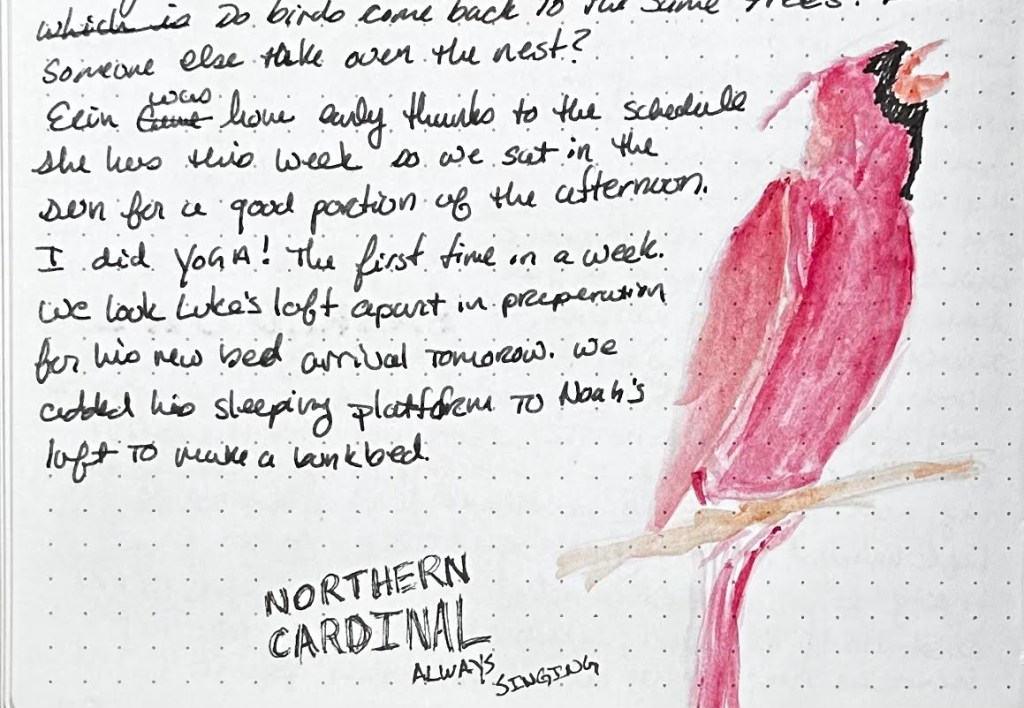 which is Do birds come back to the same trees?
Someone else take over the nest?
Erin came was home early thanks to the schedule
she has this week so we sat in the
sun for a good portion of the afternoon.
I did YOGA! The first time in a week.
We took Luke's loft apart in preperation
for his new bed arrival tomorow. We
added his sleeping platform to Noah's
loft to make a bunkbed.
NORTHERN
CARDINAL
ALWAYS
SINGING